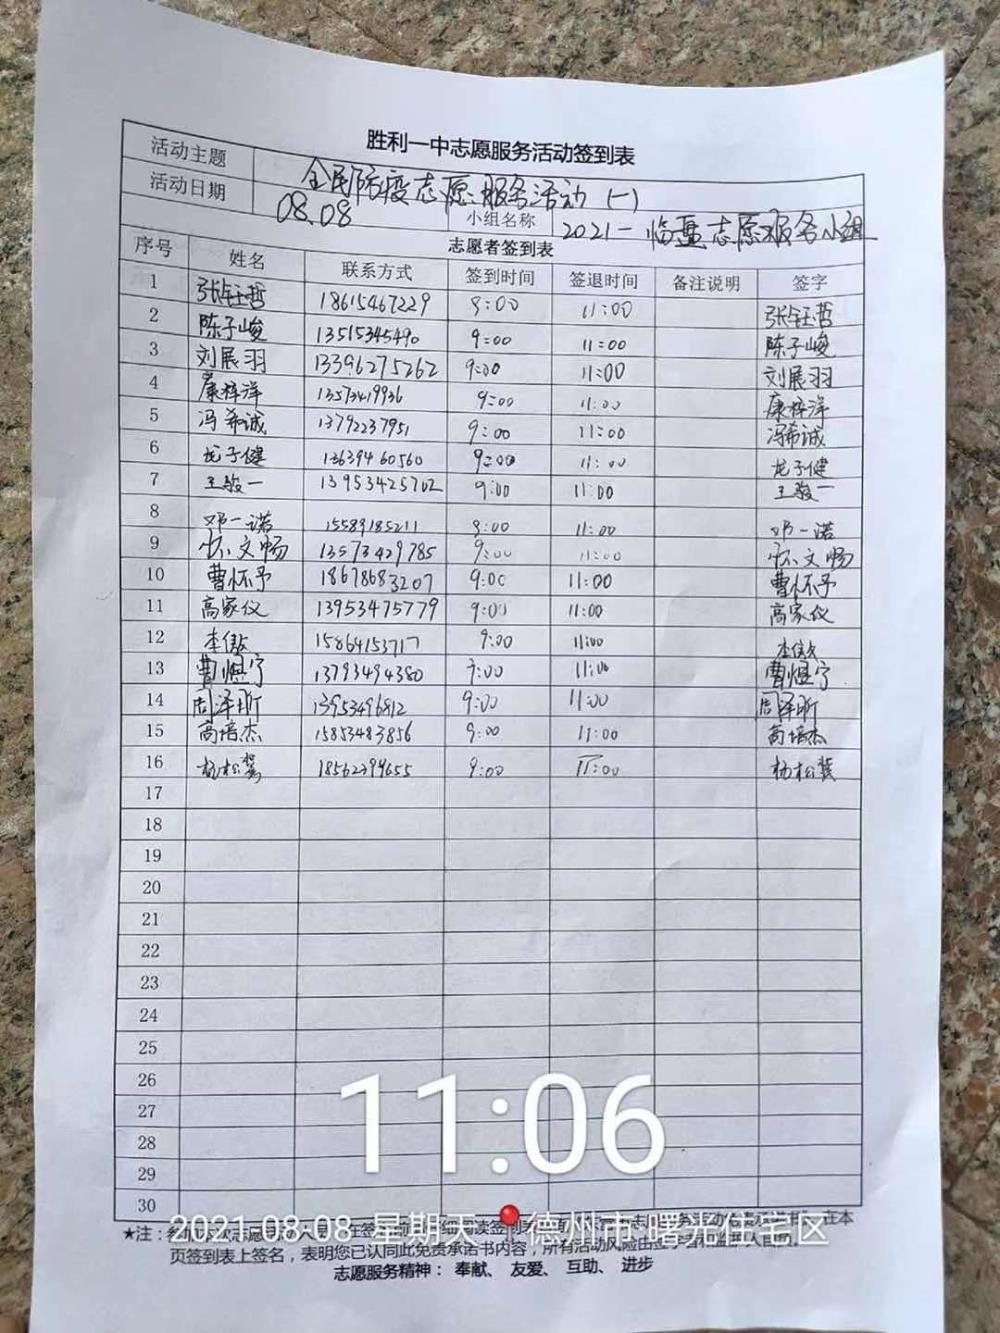 胜利一中志愿服务活动签到表
活动主题 全民防疫志愿服务活动（一）
活动日期 08.08 小组名称 2021-临盘志愿服务小组
志愿者签到表
序号 姓名 联系方式 签到时间 签退时间 备注说明 签字
1 张钰哲 18615467229 8:00 11:00 张钰哲
2 陈子峻 13515345490 9:00 11:00 陈子峻
3 刘展羽 13396275262 9:00 11:00 刘展羽
4 康梓洋 13573419936 9:00 11:00 康梓洋
5 冯希诚 13792237951 9:00 11:00 冯希诚
6 龙子健 13639460560 9:00 11:00 龙子健
7 王毅一 13953425702 9:00 11:00 王毅一
8 邓一诺 15589185211 8:00 11:00 邓一诺
9 怀文畅 13573429785 9:00 11:00 怀文畅
10 曹怀予 18678683207 9:00 11:00 曹怀予
11 高家仪 13953475779 9:00 11:00 高家仪
12 李傲 15864153717 9:00 11:00 李傲
13 曹煜宁 13793494380 9:00 11:00 曹煜宁
14 周泽昕 13953496812 9:00 11:00 周泽昕
15 高培杰 15853483856 9:00 11:00 高培杰
16 杨松冀 18562299655 9:00 11:00 杨松冀
17
18
19
20
21
22
23
24
25
26
27
28
29
30
11:06
2021.08.08 星期天 德州市·曙光住宅区
★注：
页签到表上签名，表明您已认同此免责承诺书内容，所有活动风险由
志愿服务精神： 奉献、 友爱、 互助、 进步